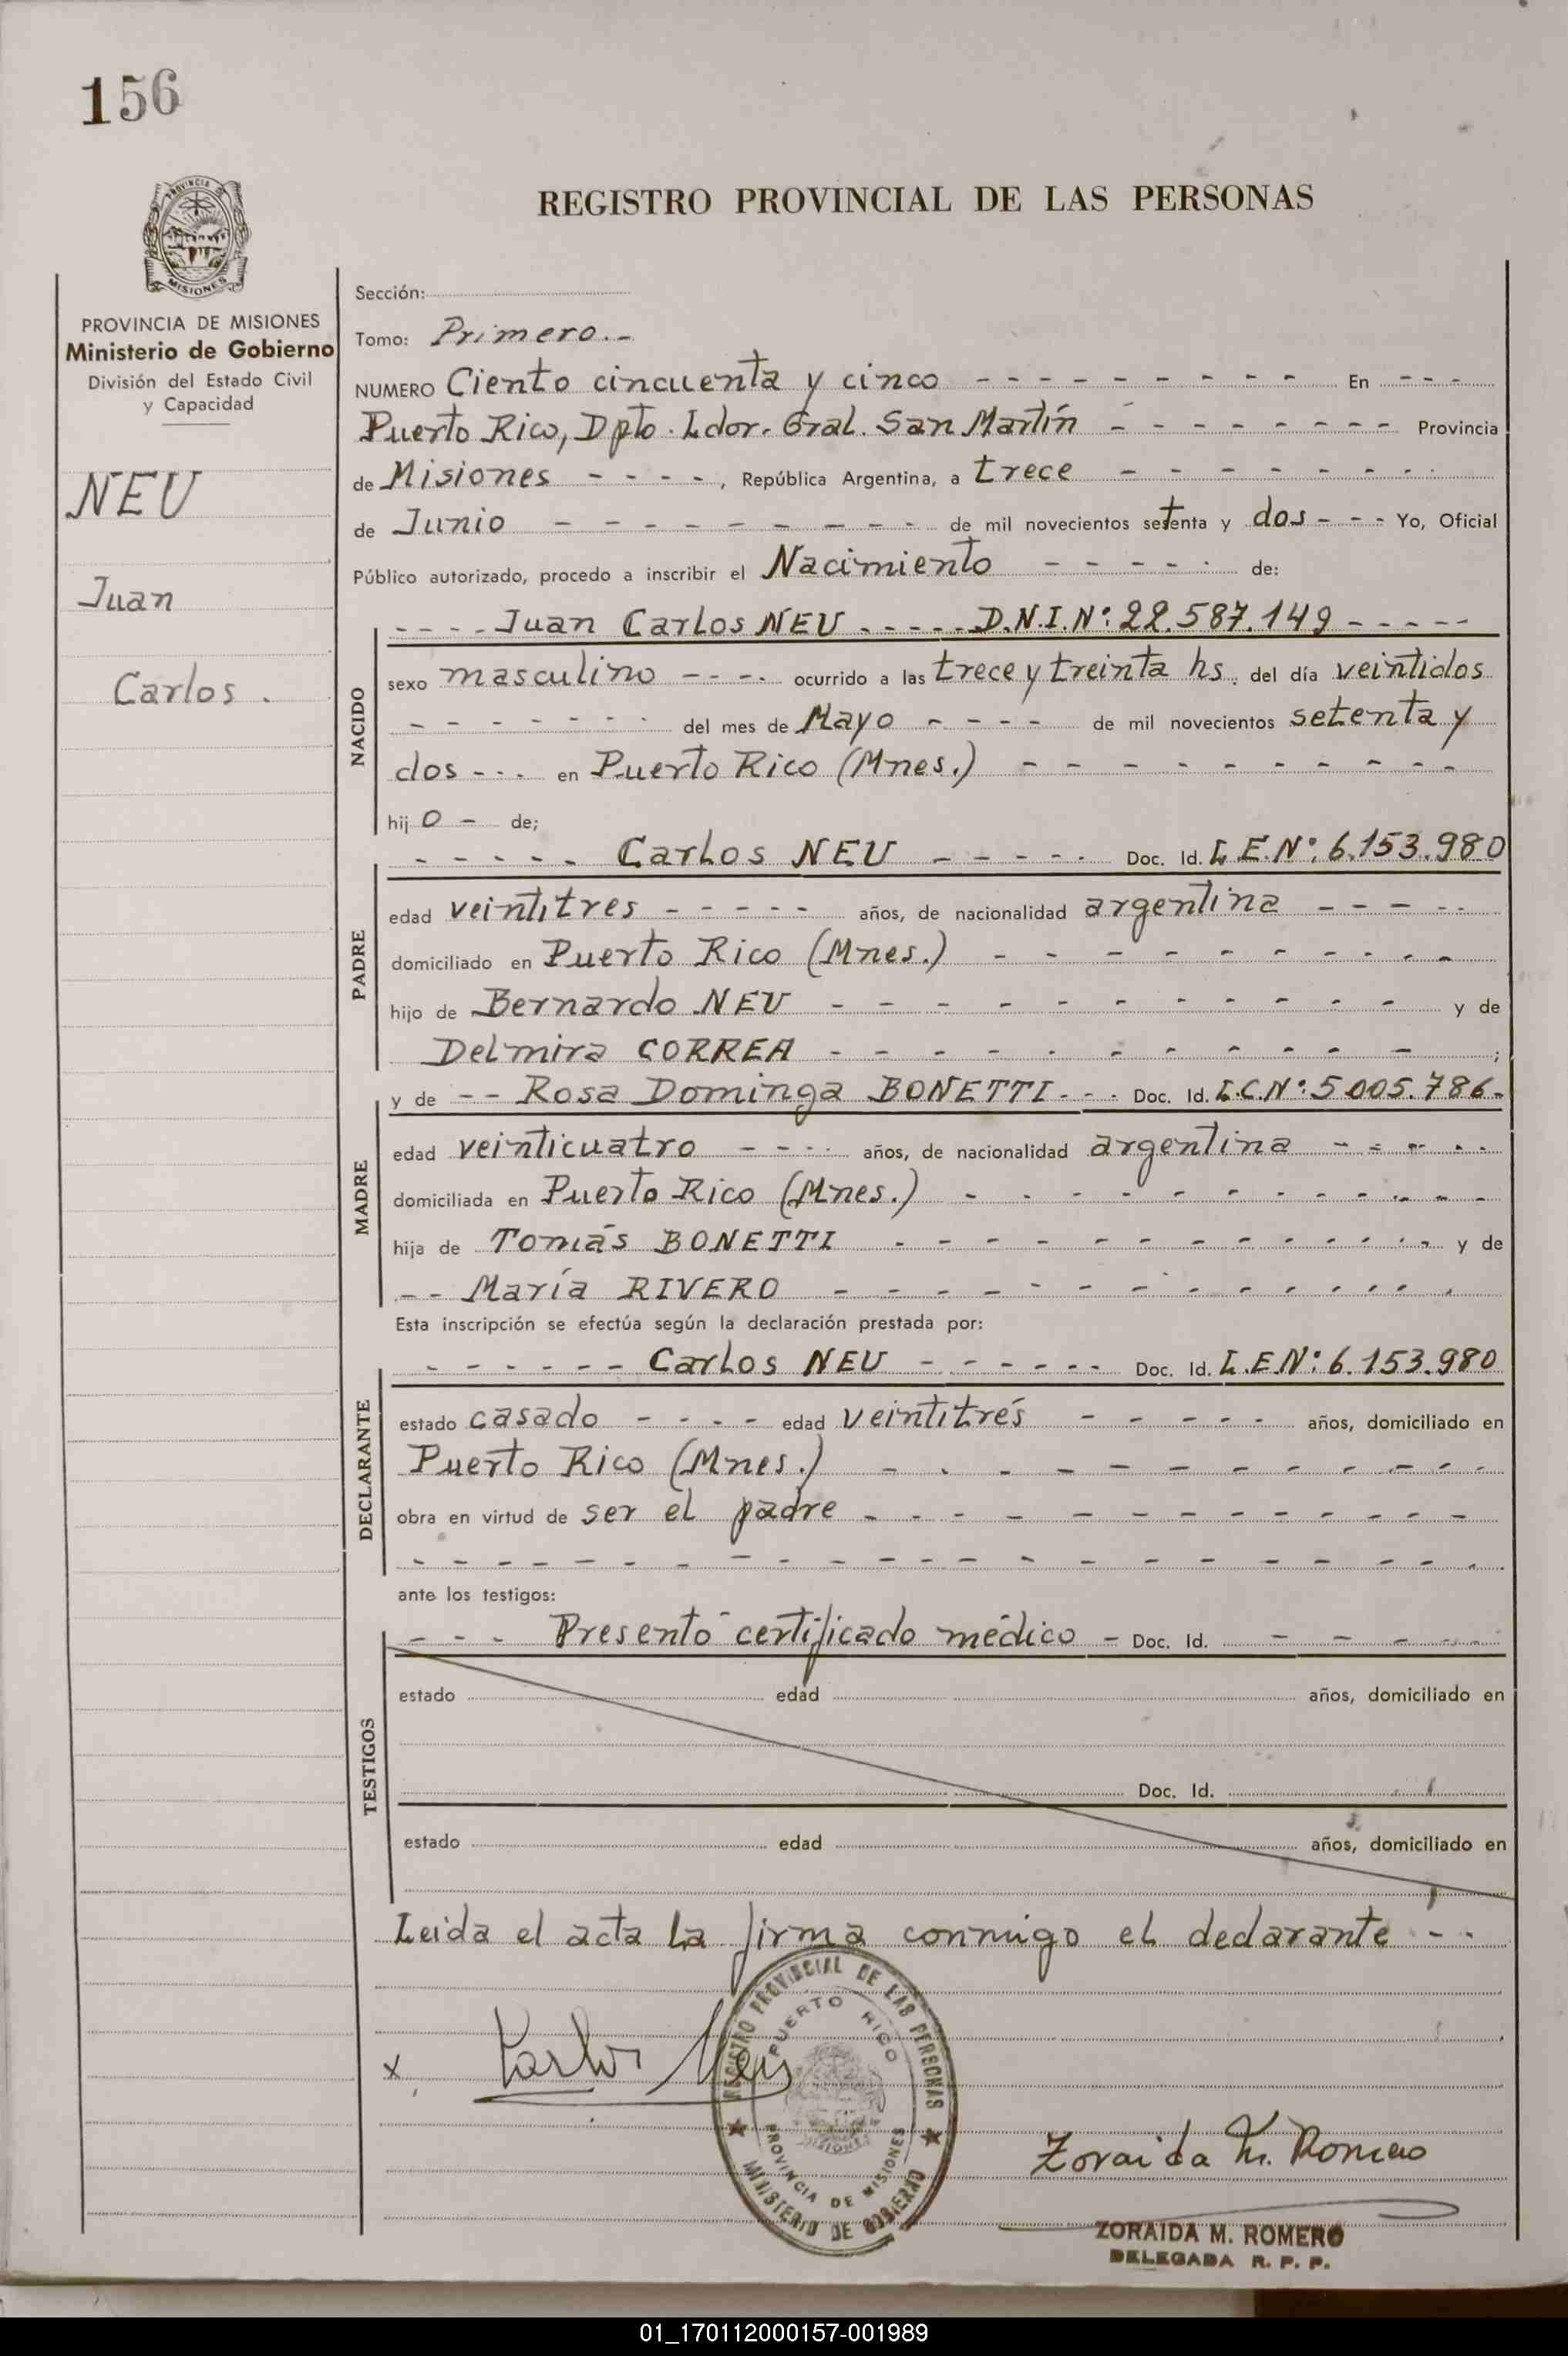 156
REGISTRO PROVINCIAL DE LAS PERSONAS
PROVINCIA
MISIONES
PROVINCIA DE MISIONES
Ministerio de Gobierno
División del Estado Civil
y Capacidad
NEU
Juan
Carlos.
Sección:
Tomo: Primero.-
NUMERO Ciento cincuenta y cinco - - - - - - - - - En - - -
Puerto Rico, Dpto. Ldor. Gral. San Martín - - - - - - - - Provincia
de Misiones - - - -, República Argentina, a trece - - - - - - - -
de Junio - - - - - - - - - de mil novecientos setenta y dos - - - Yo, Oficial
Público autorizado, procedo a inscribir el Nacimiento - - - - - de:
- - - - Juan Carlos NEU - - - - - D.N.I.Nº: 22.587.149 - - - - -
NACIDO
sexo masculino - - - - ocurrido a las trece y treinta hs. del día veintidos
- - - - - - - - del mes de Mayo - - - - de mil novecientos setenta y
dos - - - en Puerto Rico (Mnes.) - - - - - - - - - -
hij o - de;
- - - - - Carlos NEU - - - - - Doc. Id. L.E.Nº: 6.153.980
PADRE
edad veintitres - - - - - años, de nacionalidad argentina - - - - -
domiciliado en Puerto Rico (Mnes.) - - - - - - - - - -
hijo de Bernardo NEU - - - - - - - - - - - y de
Delmira CORREA - - - - - - - - - - - ;
y de - - Rosa Dominga BONETTI - - - Doc. Id. L.C.Nº: 5.005.786-
MADRE
edad veinticuatro - - - - años, de nacionalidad argentina - - - - -
domiciliada en Puerto Rico (Mnes.) - - - - - - - - - - -
hija de Tomás BONETTI - - - - - - - - - - - - y de
- - María RIVERO - - - - - - - - - - - - -
Esta inscripción se efectúa según la declaración prestada por:
- - - - - - Carlos NEU - - - - - - Doc. Id. L.E.Nº: 6.153.980
DECLARANTE
estado casado - - - - edad veintitrés - - - - - años, domiciliado en
Puerto Rico (Mnes.) - - - - - - - - - - - -
obra en virtud de ser el padre - - - - - - - - - - - -
- - - - - - - - - - - - - - - - - - - - -
ante los testigos:
- - - Presentó certificado médico - Doc. Id. - - - - -
TESTIGOS
estado edad años, domiciliado en
Doc. Id.
estado edad años, domiciliado en
Leida el acta la firma conmigo el declarante - -
x Carlos Neu
REGISTRO PROVINCIAL DE LAS PERSONAS
PUERTO RICO
MISIONES
PROVINCIA DE MISIONES
MINISTERIO DE GOBIERNO
Zoraida M. Romero
ZORAIDA M. ROMERO
DELEGADA R. P. P.
01_170112000157-001989